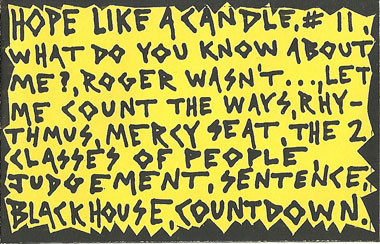 HOPE LIKE A CANDLE, # 11,
WHAT DO YOU KNOW ABOUT
ME?, ROGER WASN'T..., LET
ME COUNT THE WAYS, RHY-
THMUS, MERCY SEAT, THE 2
CLASSES OF PEOPLE,
JUDGEMENT, SENTENCE,
BLACKHOUSE, COUNTDOWN.